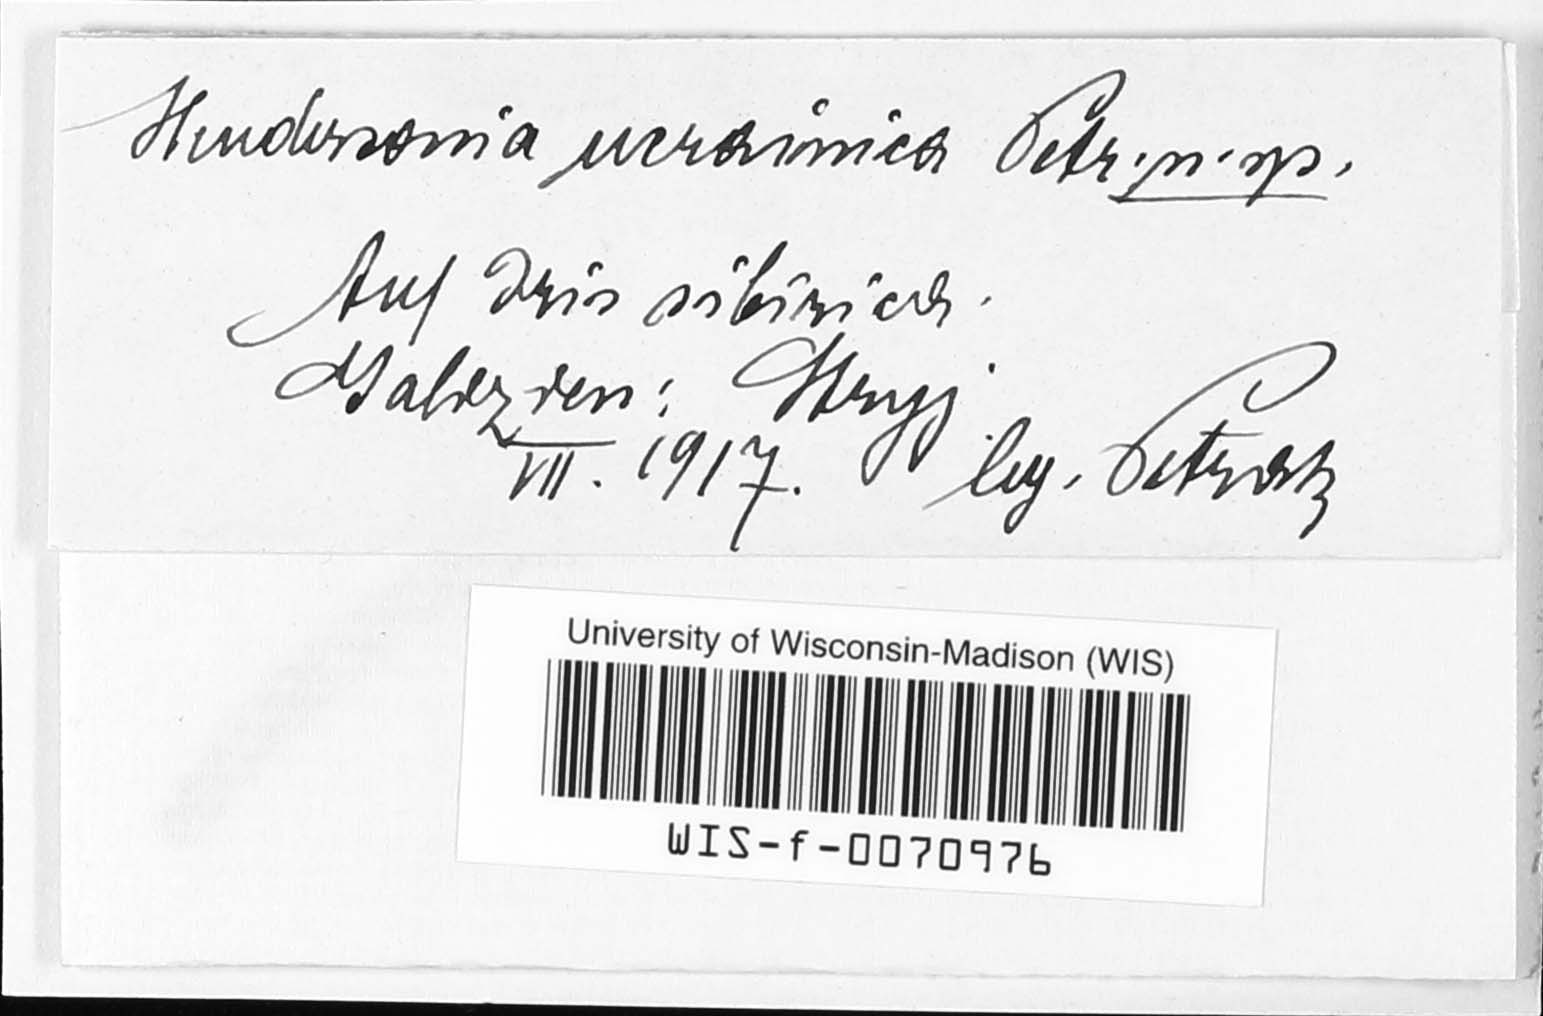 Hendersonia ucrainica Petr. n. sp.
Auf Iris sibirica.
Galizien: Stryj
VII. 1917. leg. Petrak
University of Wisconsin-Madison (WIS)
WIS-f-0070976